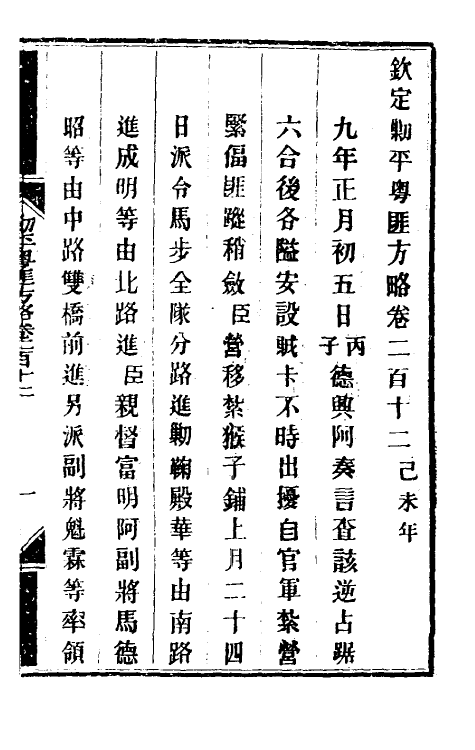 欽定勦平粵匪方略卷二百十二己未年
九年正月初五日丙子德興阿奏言查該逆占踞
六合後各隘安設賊卡不時出擾自官軍紮營
緊偪匪蹤稍斂臣營移紮猴子鋪上月二十四
日派令馬步全隊分路進勦鞠殿華等由南路
進成明等由北路進臣親督富明阿副將馬德
昭等由中路雙橋前進另派副將魁霖等率領
勦平粵匪方略卷二百十二
一